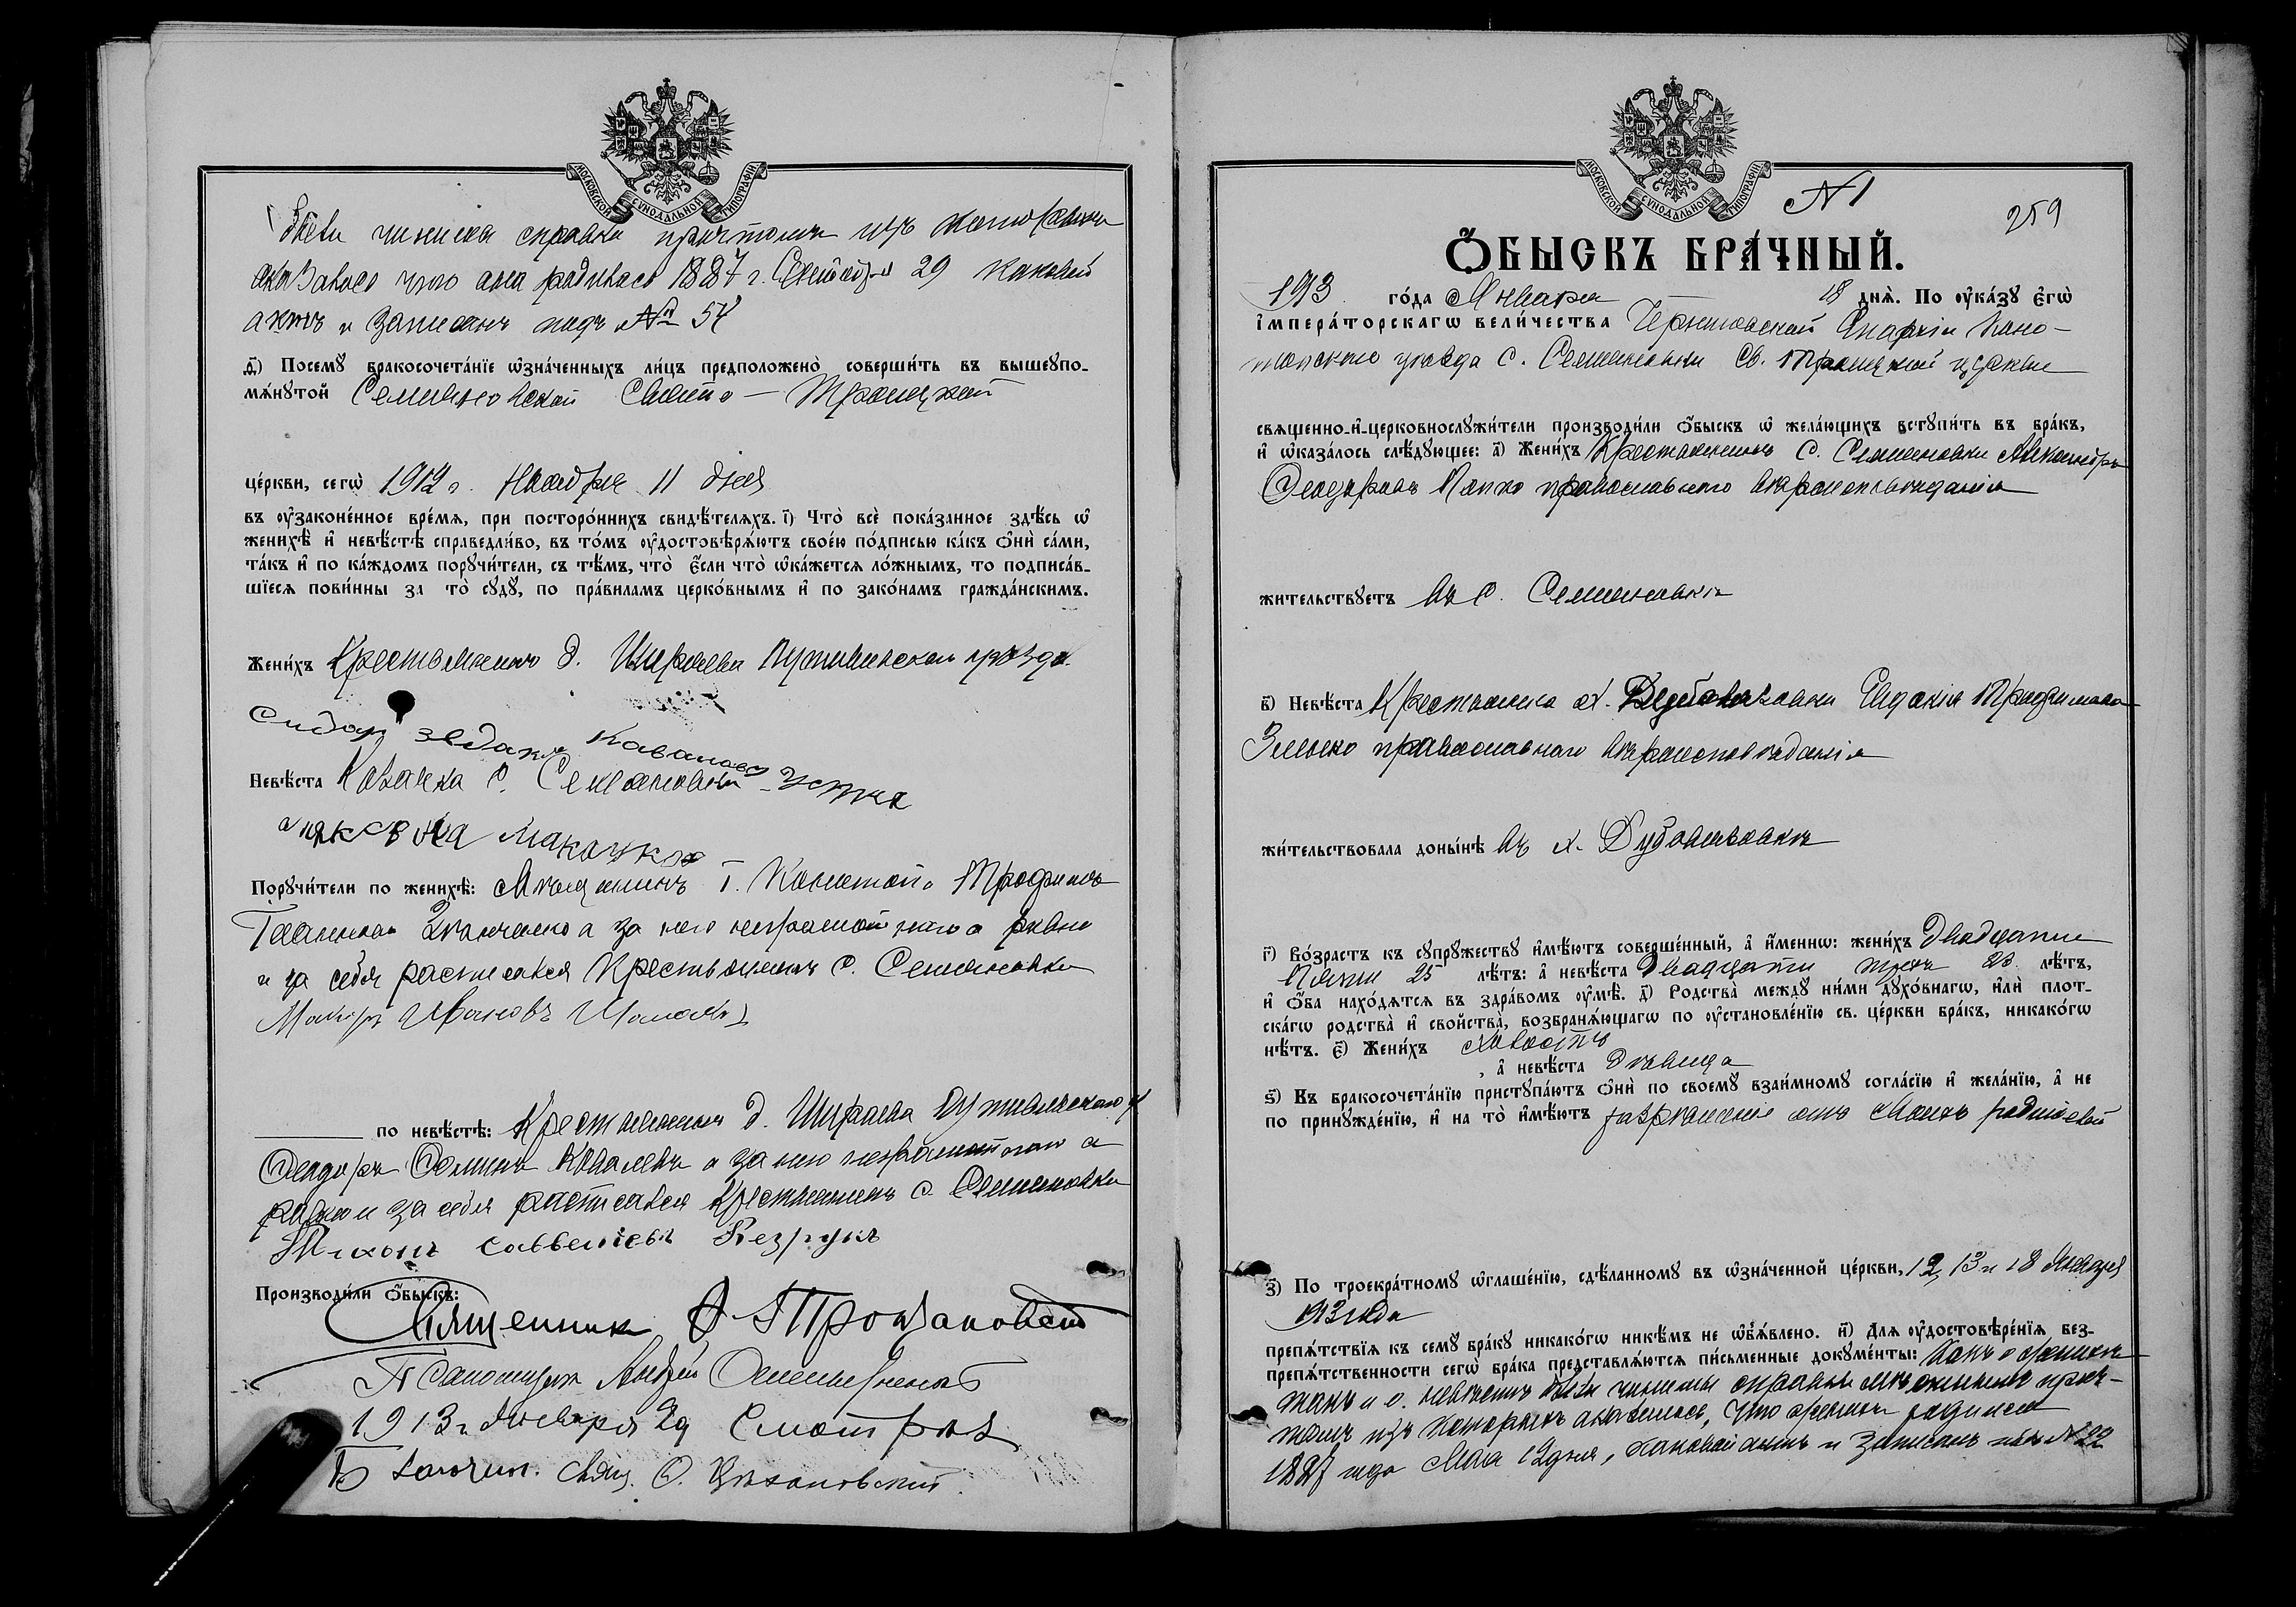 МОСКОВСКОЙ СУНОДАЛЬНОЙ ТИПОГРАФІИ
справка
оказалось что она родилась 1887 г. Сентября 29 каковой
актъ и записанъ подъ № 54
д҃) Посемꙋ бракосочета́нїе ѡзна́ченныхъ ли́цъ предположено̀ соверши́ть въ вышеꙋпо-
мѧ́нꙋтой Семяновской Свято — Троицкой
це́ркви, сегѡ̀ 1912 г. Ноября 11 дня
въ ᲂу҆законе́нное вре́мѧ, при посторо́ннихъ свидѣ́телѧхъ. і҃) Что̀ всѐ пока́занное здѣ́сь ѡ҆
женихѣ̀ и҆ невѣ́стѣ справедли́во, въ то́мъ ᲂу҆достовѣрѧ́ютъ свое́ю по́дписью ка́къ ѻ҆нѝ са́ми,
та́къ и҆ по ка́ждомъ порꙋчи́тели, съ тѣ́мъ, что̀ є҆́сли что̀ ѡ҆ка́жетсѧ ло́жнымъ, то подписа́в-
шїесѧ пови́нны за то̀ сꙋдꙋ̀, по пра́виламъ церко́внымъ и҆ по зако́намъ гражда́нскимъ.
Жени́хъ Крестьянинъ д. Ширяева Путивльскаго уѣзда
Невѣ́ста Козачка с. Семяновки
Порꙋчи́тели по женихѣ̀: Мѣщанинъ г. Конотопа Трофимъ
а за него неграмотнаго а равно
и за себя расписался Крестьянинъ с. Семяновки
Ивановъ
по невѣ́стѣ: Крестьянинъ д. Ширяева Путивльскаго у
Феодоръ Ковалевъ а за него неграмотнаго а
равно и за себя расписался Крестьянинъ с. Семяновки
Тихонъ Савветіевъ Безрукъ
Производи́ли ѻ҆́быскъ:
Священник
Псаломщикъ Андрей
1913 г. Января 29 Смотрѣлъ
Благочин. Свящ.
МОСКОВСКОЙ СУНОДАЛЬНОЙ ТИПОГРАФІИ
№ 1
259
Ѻ҆́БЫСКЪ БРА́ЧНЫЙ.
1913 го́да Января 18 днѧ̀. По ᲂу҆ка́зꙋ є҆гѡ̀
і҆мпера́торскагѡ вели́чества Черниговской Епархіи Коно-
топскаго уѣзда с. Семяновки Св. Троицкой церкви
свѧщенно-и҆-церковнослꙋжи́тели производи́ли ѻ҆́быскъ ѡ҆ жела́ющихъ встꙋпи́ть въ бра́къ,
и҆ ѡ҆каза́лось слѣ́дꙋющее: а҃) Жени́хъ Крестьянинъ с. Семяновки Александръ
Феодоровъ Попко православнаго вѣроисповѣданія
жительствꙋетъ въ с. Семяновкѣ
в҃) Невѣ́ста Крестьянка х. Евдокія Трофимова
православнаго вѣроисповѣданія
жи́тельствовала доны́нѣ въ х.
г҃) Во́зрастъ къ сꙋпрꙋ́жествꙋ и҆мѣ́ютъ соверше́нный, а҆ и҆́меннѡ: жени́хъ двадцати
пяти 25 лѣ́тъ: а҆ невѣ́ста двадцати трехъ 23 лѣ́тъ,
и҆ ѻ҆́ба нахо́дѧтсѧ въ здра́вомъ ᲂу҆мѣ̀. д҃) Родства̀ междꙋ̀ ни́ми дꙋхо́внагѡ, и҆лѝ плот-
ска́гѡ родства̀ и҆ сво́йства̀, возбранѧ́ющагѡ по ᲂу҆становле́нїю св. це́ркви бра́къ, никако́гѡ
нѣ́тъ. є҃) Жени́хъ холостъ
, а҆ невѣ́ста дѣвица
ѕ҃) Въ бракосочета́нїе пристꙋпа́ютъ ѻ҆нѝ по своемꙋ̀ взаи́мномꙋ согла́сїю и҆ жела́нїю, а҆ не
по принꙋжде́нїю, и҆ на то̀ и҆мѣ́ютъ разрѣшеніе отъ своихъ родителей
з҃) По троекра́тномꙋ ѡ҆глаше́нїю, сдѣ́ланномꙋ въ ѡ҆зна́ченной це́ркви, 12, 13 и 18 Января
1913 года
препѧ́тствїѧ къ семꙋ̀ бра́кꙋ никако́гѡ никѣ́мъ не ѡ҆б̾ѧ́влено. и҃) Длѧ ᲂу҆достовѣре́нїѧ без-
препѧ́тственности сегѡ̀ бра́ка представлѧ́ютсѧ пи́сьменные докꙋме́нты: Какъ о женихѣ
такъ и о невѣстѣ были чинимы справки мѣстнымъ прич-
томъ изъ которыхъ оказалось, что женихъ родился
1887 года Мая 12 дня, каковой актъ и записанъ подъ № 22